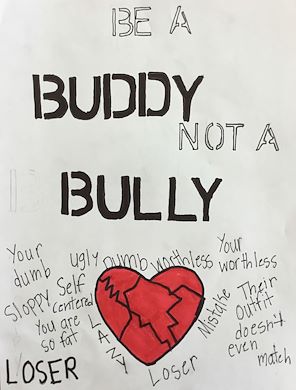 BE A
BUDDY
NOT A
BULLY
Your dumb
ugly
Dumb
worthless
Your worthless
Sloppy
Self centered
You are so fat
LAZY
Loser
Mistake
Their outfit doesn't even match
LOSER